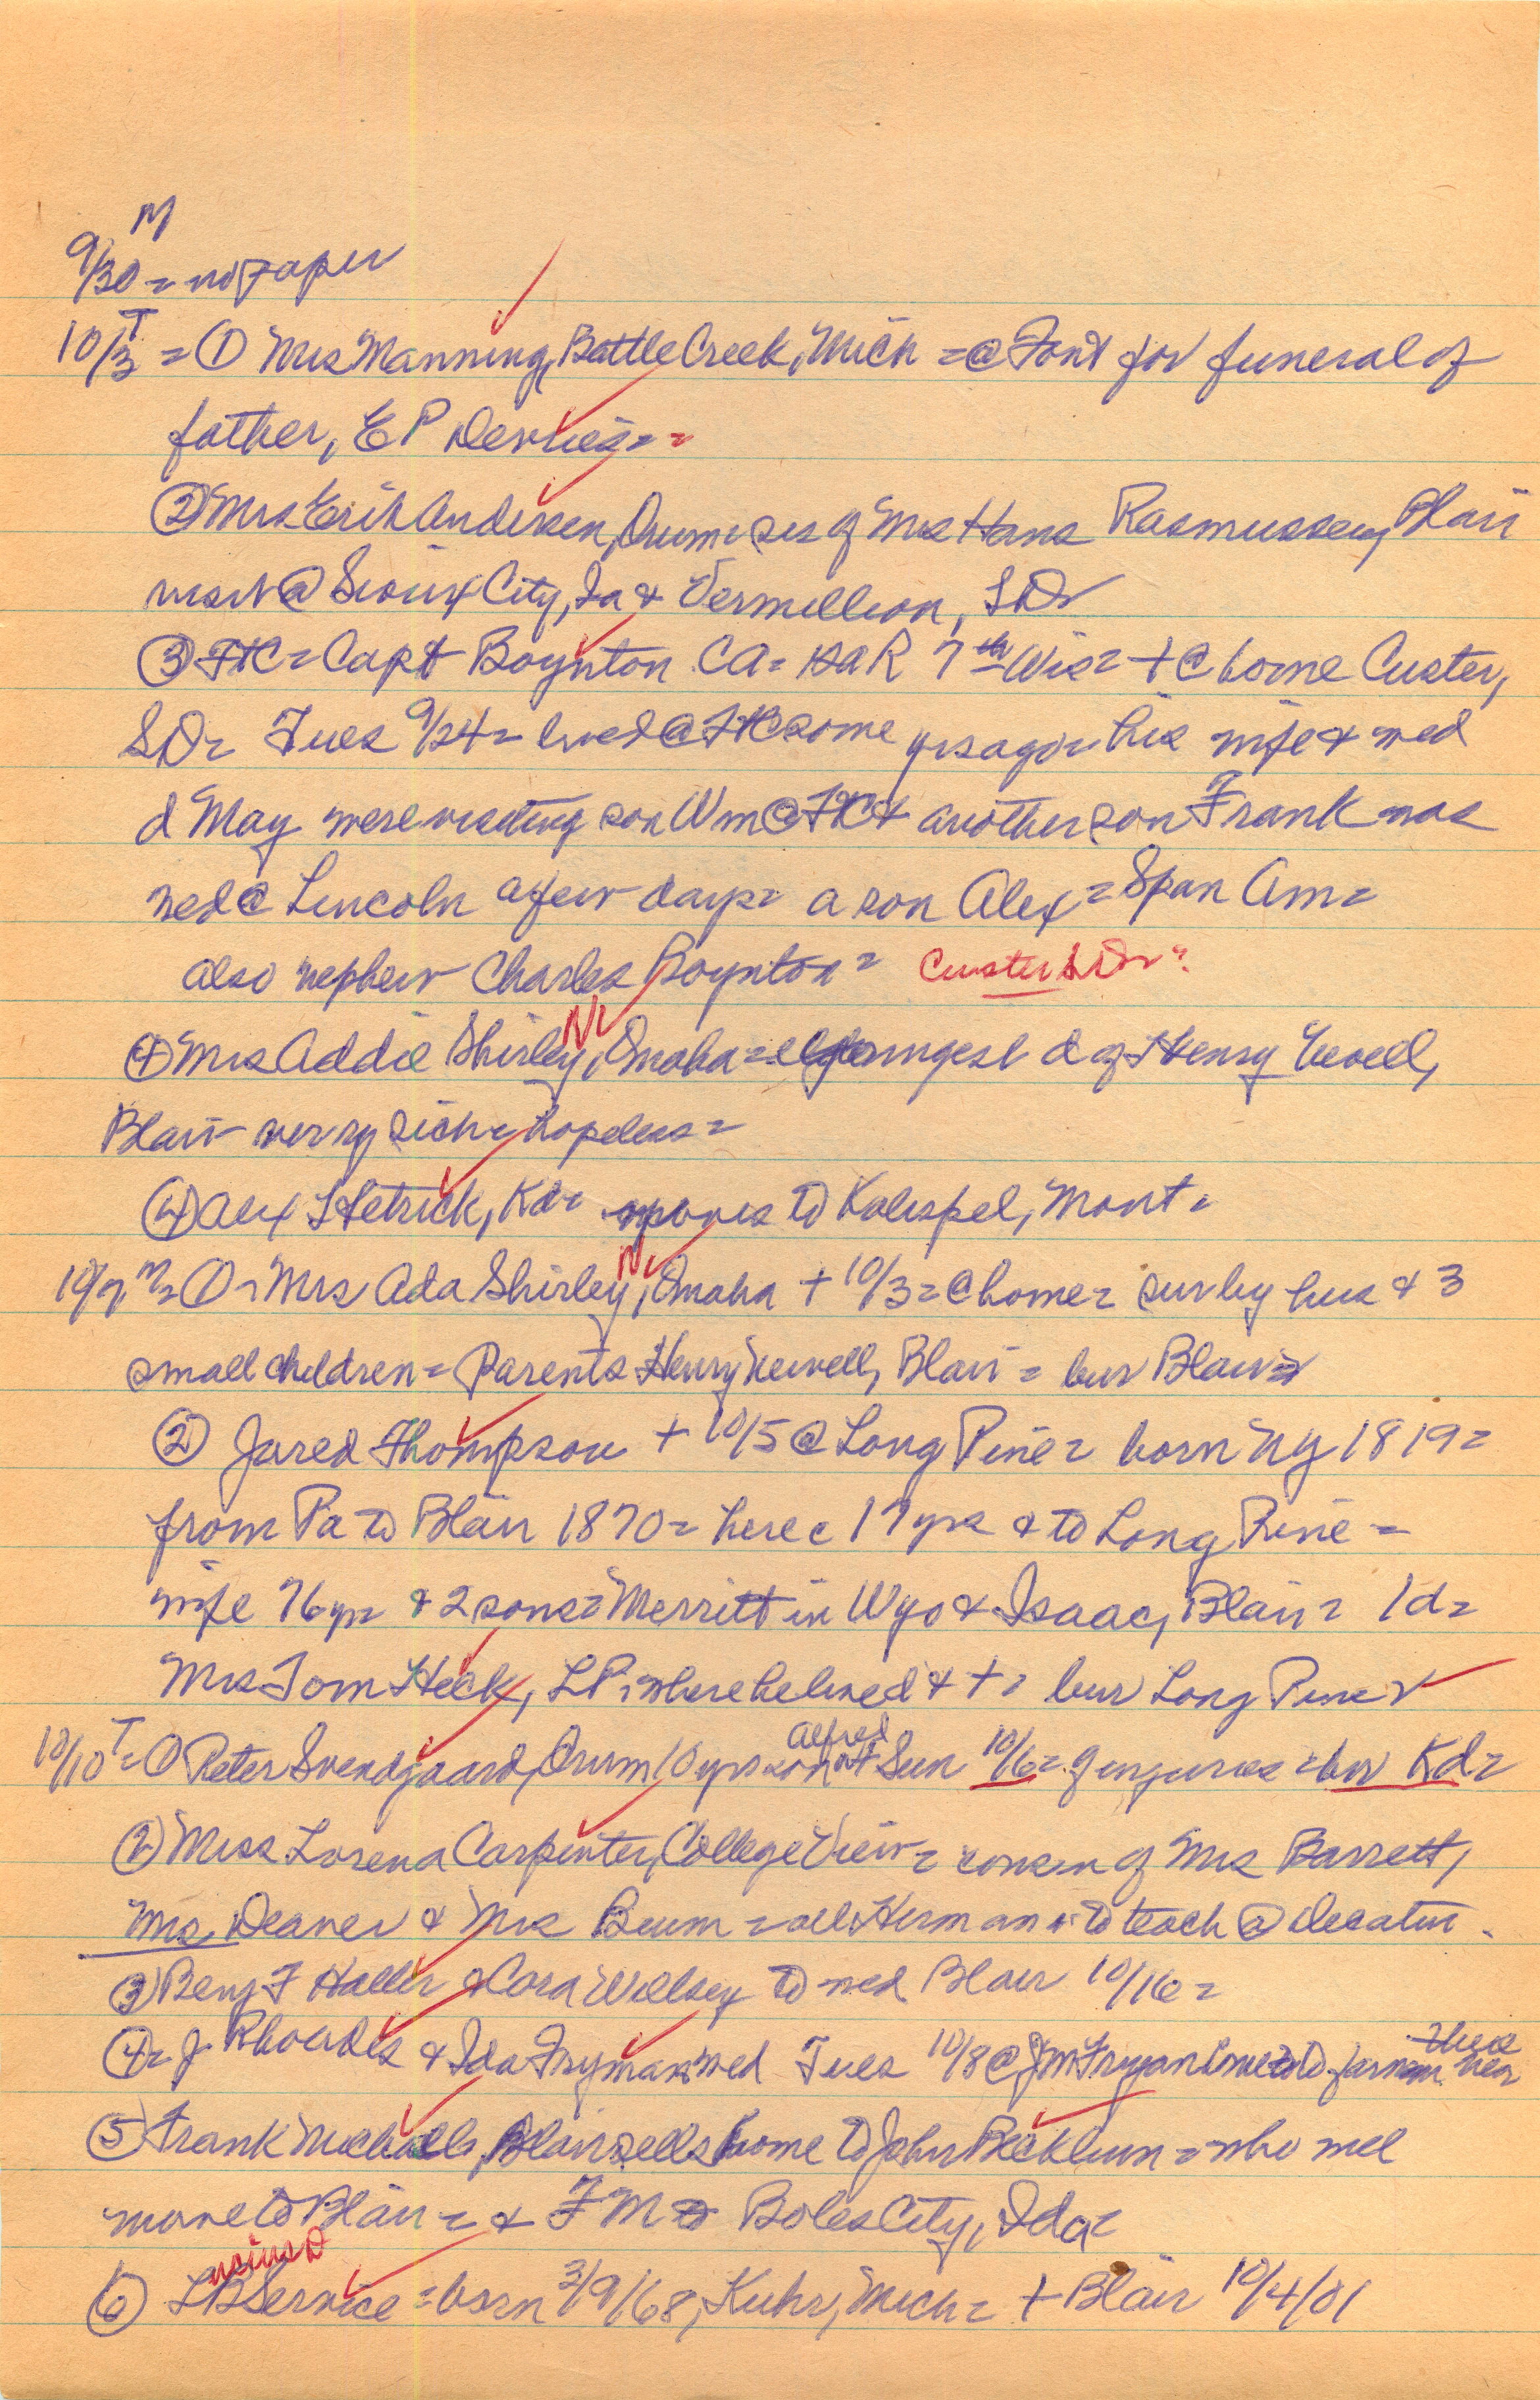 M
9/30 = no paper
10/3 T = ① Mrs Manning, Battle Creek, Mich = @ Font for funeral of
father, E P Devries =
② Mrs Erik Andersen, Orum = sis of Mrs Hans Rasmussen, Blair
visit @ Sioux City, Ia & Vermillion, SD
③ FtC = Capt Boynton CA = GAR 7th Wis = + @ home Custer,
SD = Tues 9/24 = lived @ FtC some yrs ago = his wife & wed
d May were visiting son Wm @ FtC & another son Frank was
wed @ Lincoln a few days = a son Alex = Span Am =
also nephew Charles Boynton = Custer SD?
④ Mrs Addie Shirley, Omaha = youngest d of Henry Newell,
Blair very sick = hopeless =
④ Alex Hetrick, Kd = moves to Kalispel, Mont =
10/7 M = ① = Mrs Ada Shirley, Omaha + 10/3 = @ home = sur by hus & 3
small children = Parents Henry Newell, Blair = bur Blair =
② Jared Thompson + 10/5 @ Long Pine = born NY 1819 =
from Pa to Blair 1870 = here c 17 yrs & to Long Pine =
wife 76 yrs & 2 sons = Merritt in Wyo & Isaac, Blair = 1 d =
Mrs Tom Heck, LP, where he lived & + = bur Long Pine
Alfred
10/10 T = ① Peter Svendgaard, Orum 10 yrs son + Sun 10/6 = injuries = bur Kd =
② Miss Lorena Carpenter, College View = cousin of Mrs Barrett,
Mrs Deaver & Mrs Beum = all Herman = to teach @ Decatur.
③ Benj F Haller & Cora Willsey to wed Blair 10/16 =
④ = J Rhoades & Ida Fryman wed Tues 10/8 @ JM Fryan home to farm near
⑤ Frank Michaels, Blair sells home to John Blackburn = who will
move to Blair = & FM to Boles City, Ida =
⑥ L B Service = born 3/9/68, Kuhr, Mich = + Blair 10/4/01